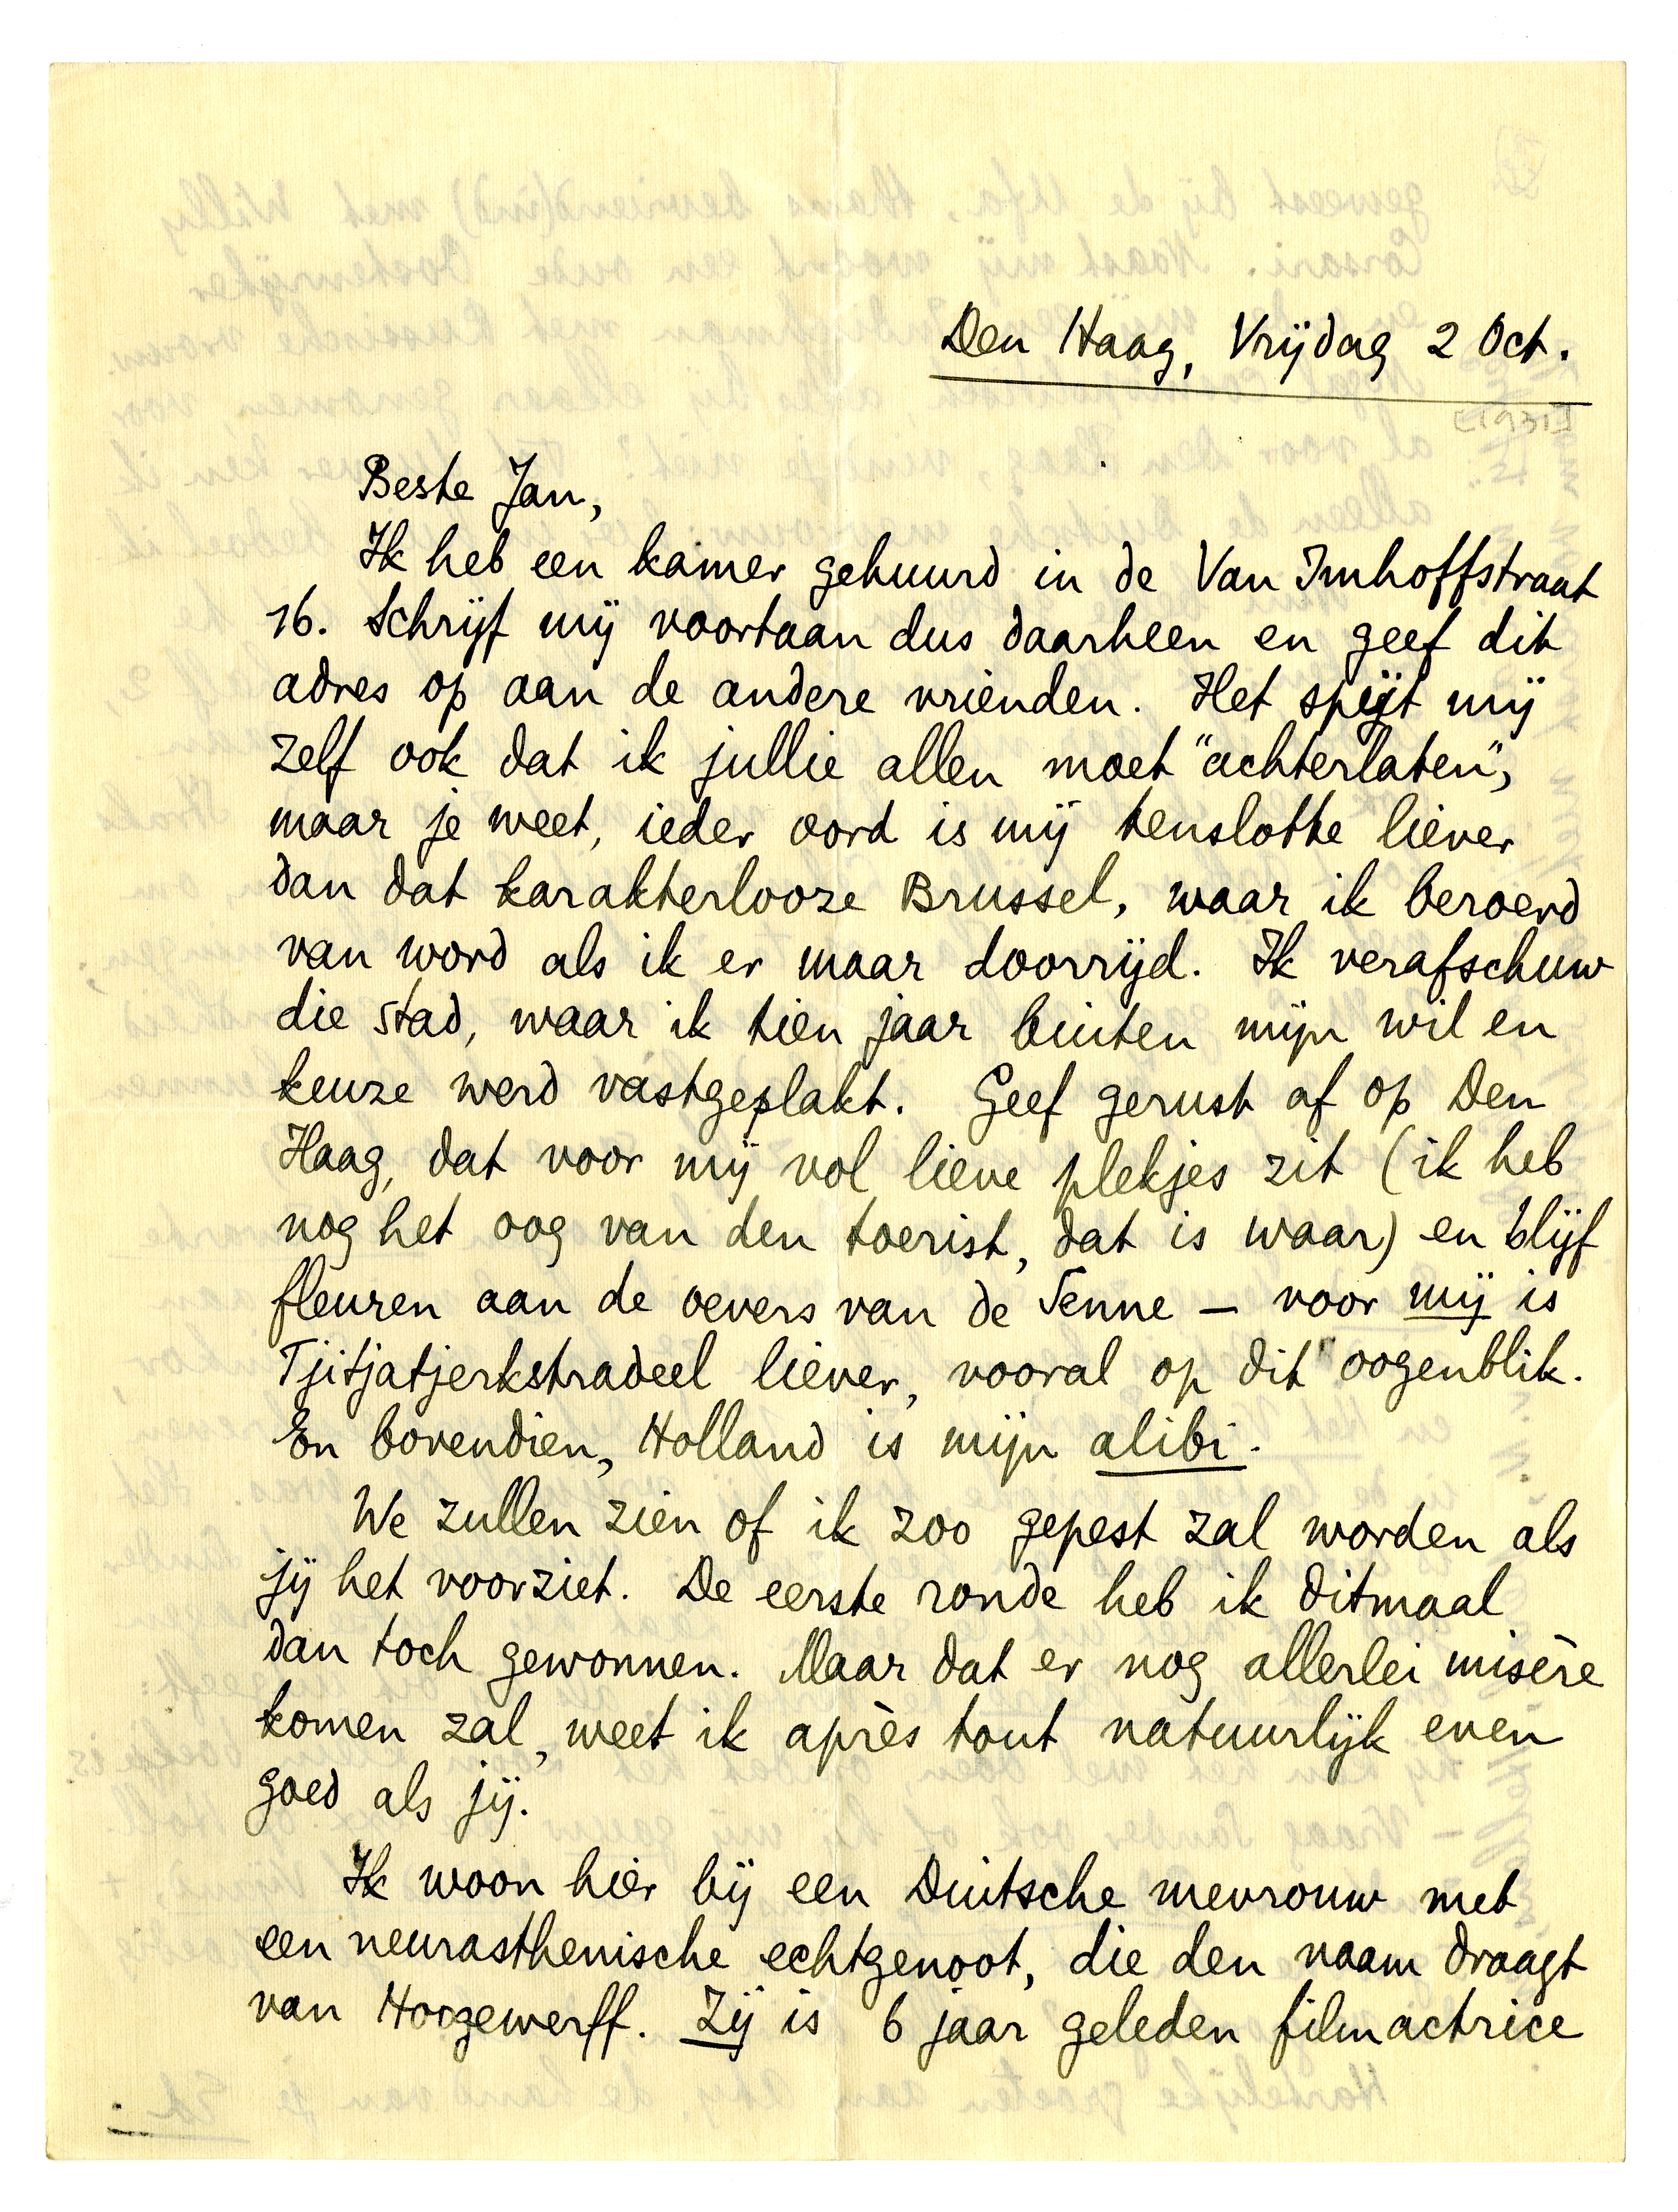 Den Haag, Vrijdag 2 Oct.
[1931]
Beste Jan,
Ik heb een kamer gehuurd in de Van Imhoffstraat
16. Schrijf mij voortaan dus daarheen en geef dit
adres op aan de andere vrienden. Het spijt mij
zelf ook dat ik jullie allen moet "achterlaten",
maar je weet, ieder oord is mij tenslotte liever
dan dat karakterlooze Brussel, waar ik beroerd
van word als ik er maar doorrijd. Ik verafschuw
die stad, waar ik tien jaar buiten mijn wil en
keuze werd vastgeplakt. Geef gerust af op Den
Haag, dat voor mij vol lieve plekjes zit (ik heb
nog het oog van den toerist, dat is waar) en blijf
fleuren aan de oevers van de Senne — voor mij is
Tjitjatjerkstradeel liever, vooral op dit oogenblik.
En bovendien, Holland is mijn alibi.
We zullen zien of ik zoo gepest zal worden als
jij het voorziet. De eerste ronde heb ik ditmaal
dan toch gewonnen. Maar dat er nog allerlei misère
komen zal, weet ik après tout natuurlijk even
goed als jij.
Ik woon hier bij een Duitsche mevrouw met
een neurasthenische echtgenoot, die den naam draagt
van Hoogewerff. Zij is 6 jaar geleden filmactrice